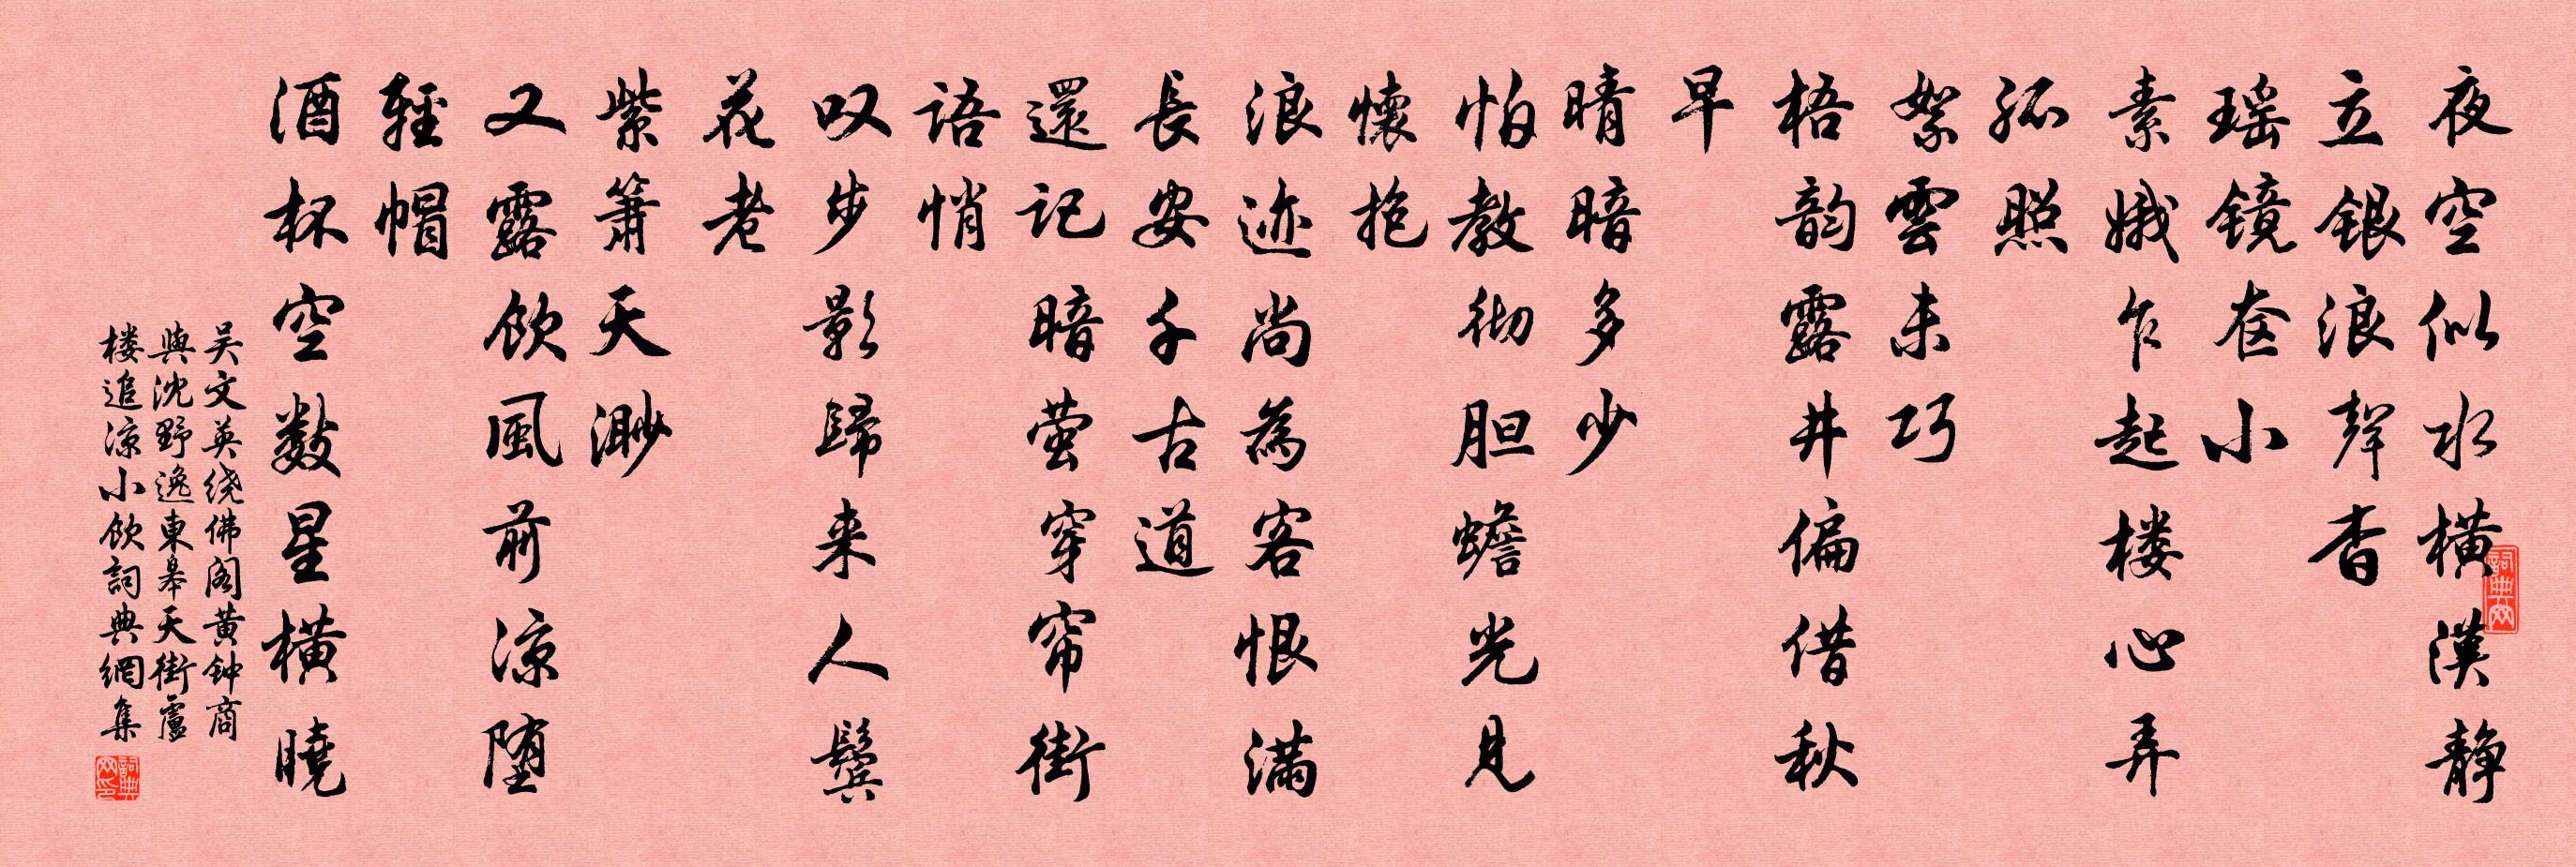 夜空似水横漢静
立銀浪聲杳
瑶镜奁小
素娥乍起楼心弄
孤照
絮雲未巧
梧韵露井偏借秋
早
晴暗多少
怕教彻胆蟾光見
懐抱
浪迹尚為客恨满
長安千古道
還记暗萤穿帘街
语悄
叹步影歸来人鬓
花老
紫箫天渺
又露飲風前凉堕
輕帽
酒杯空数星横曉
吴文英绕佛阁黄钟商
與沈野逸東皋天街盧
楼追凉小飲詞典網集
詞典网
詞典网印